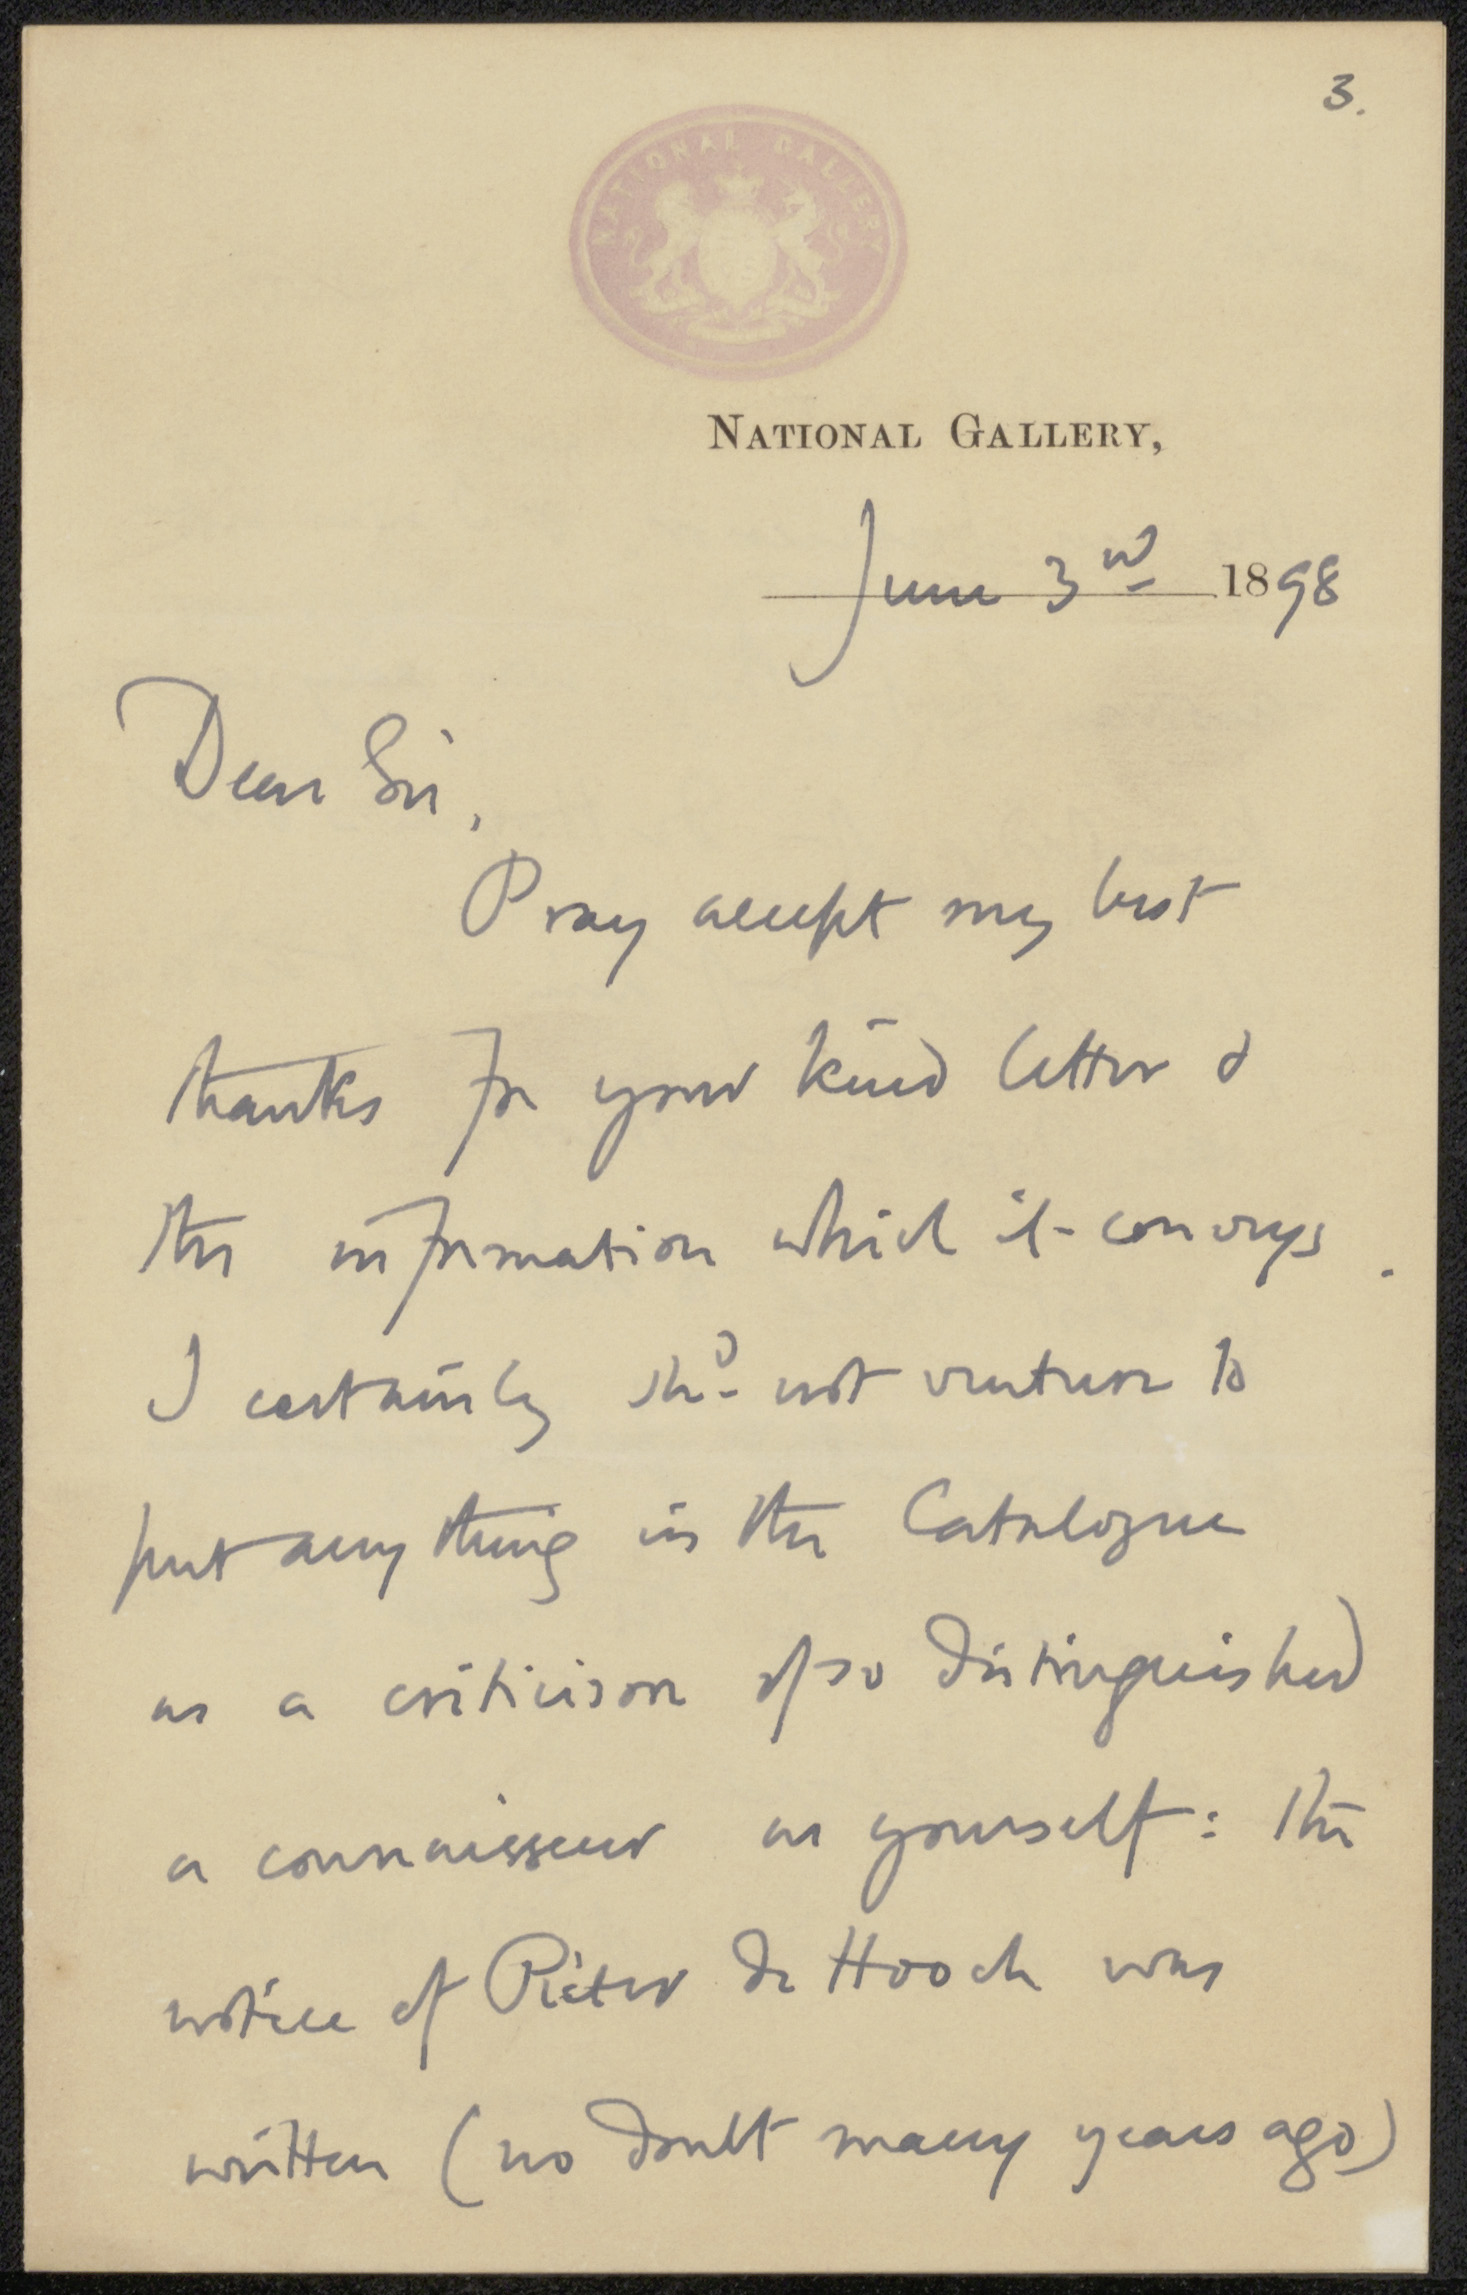 3.
NATIONAL GALLERY
NATIONAL GALLERY,
June 3rd 1898
Dear Sir,
Pray accept my best
thanks for your kind letter &
the information which it conveys.
I certainly shd not venture to
put anything in the Catalogue
as a criticism of so distinguished
a connaisseur as yourself: the
notice of Pieter de Hooch was
written (no doubt many years ago)